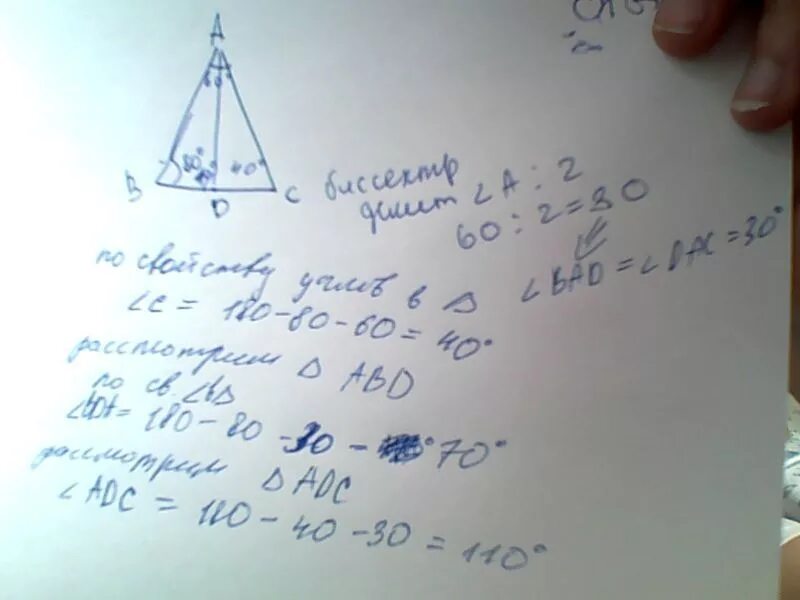 A
60°
80° 40°
B D C
биссектр
делит ∠A : 2
60 : 2 = 30
∠BAD = ∠DAC = 30°
по свойству углов в △
∠C = 180 - 80 - 60 = 40°
рассмотрим △ ABD
по св. ∠ в △
∠BDA = 180 - 80 - 30 - 70°
рассмотрим △ ADC
∠ADC = 180 - 40 - 30 = 110°